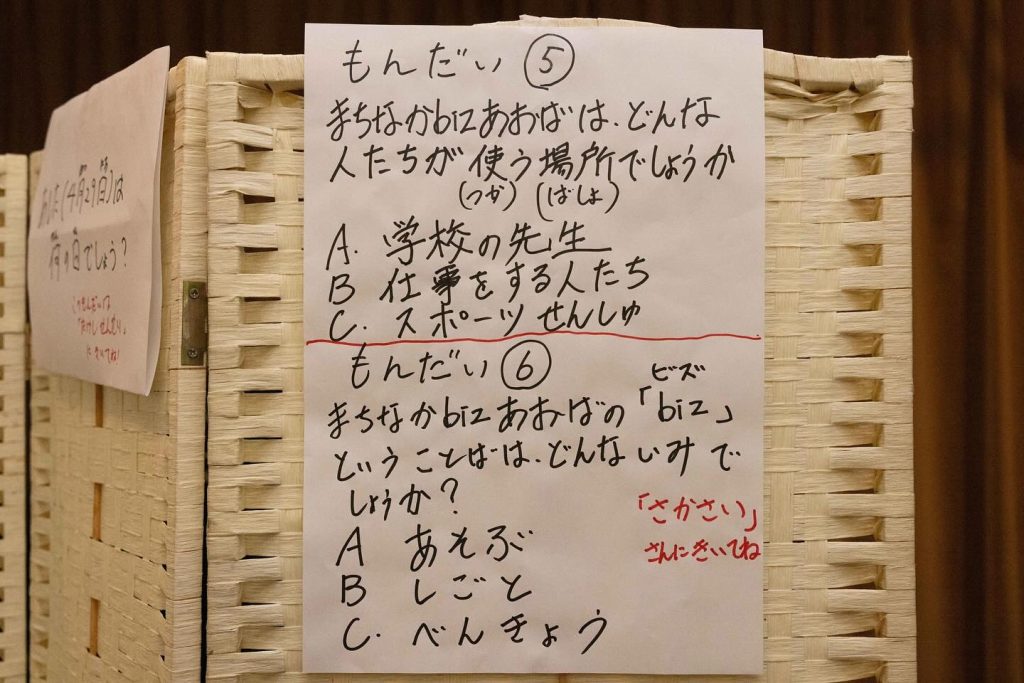 もんだい ⑤
まちなかbizあおばは、どんな
人たちが使う場所でしょうか
(つか) (ばしょ)
A. 学校の先生
B 仕事をする人たち
C. スポーツせんしゅ
もんだい ⑥
ビズ
まちなかbizあおばの「biz」
ということばは、どんないみで
しょうか?
A あそぶ
B しごと
C. べんきょう
「さかさい」
さんにきいてね
あした(4月29日)は
何の日でしょう?
このもんだいは
にきいてね!